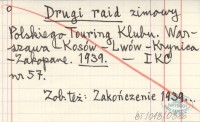 Drugi raid zimowy
Polskiego Touring Klubu. War-
szawa - Kosów - Lwów - Krynica
- Zakopane. 1939. — IKC
nr 57.
Zob. też: Zakończenie 1939...